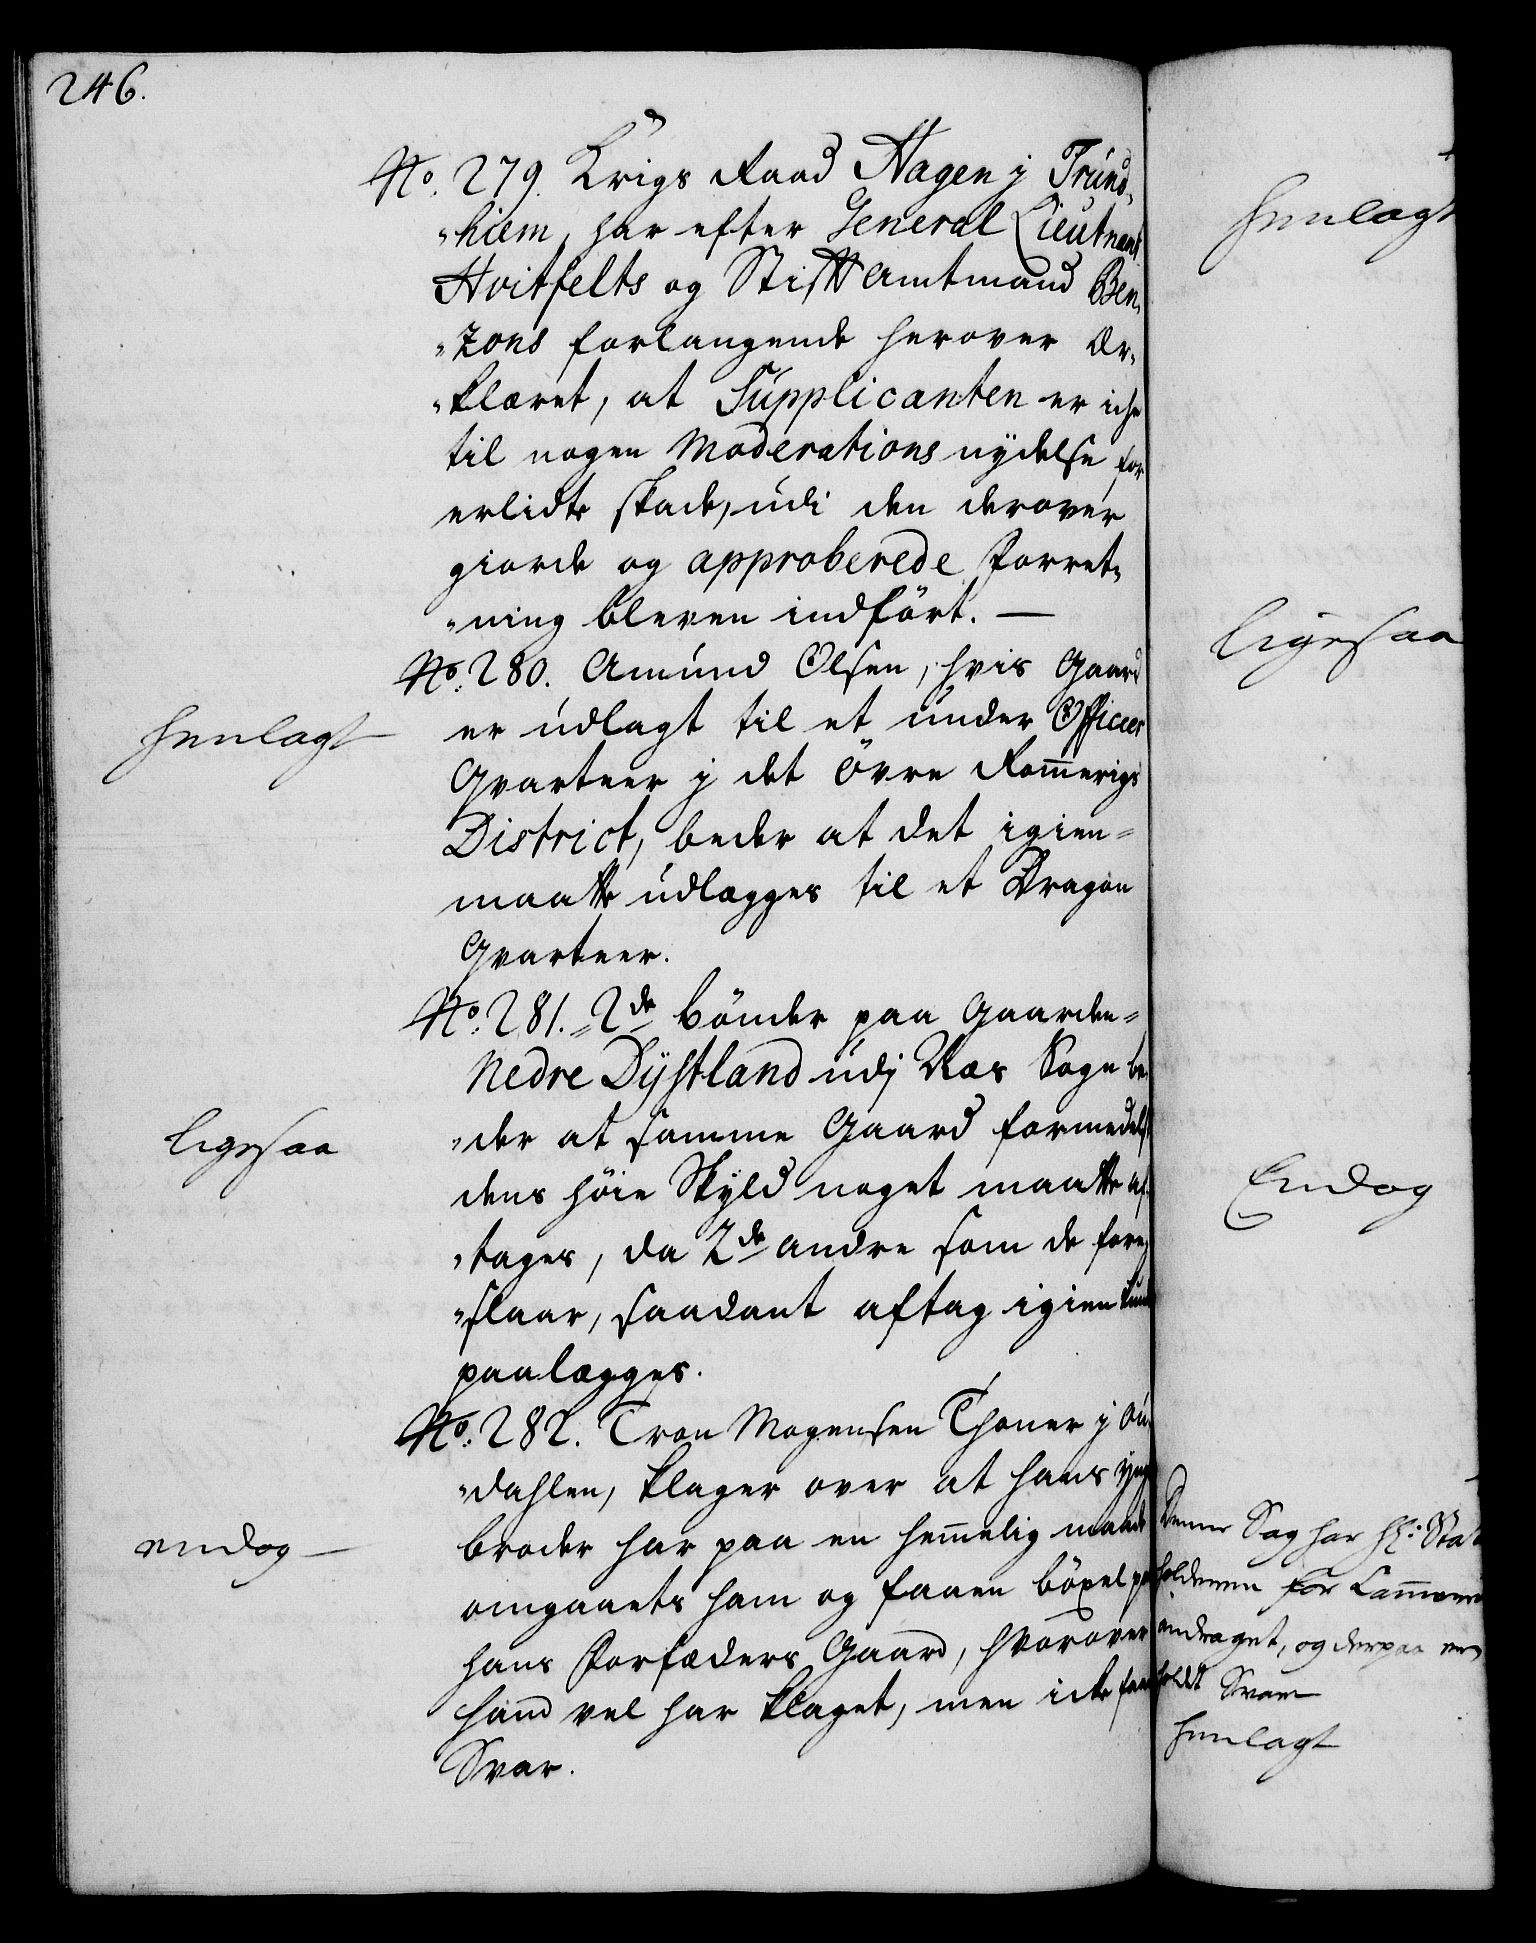 246.
No. 279. Krigs Raad Hagen j Trund„
„hiem, har efter General Lieutnant
Hvitfelts og Stifft Amtmand Ben„
„zons forlangende herover Er„
„klæret, at Supplicanten er iche
til nogen Moderations nydelse for
erlidte skade, udi den derover
giorde og approberede Forret„
„ning bleven indført. —
No. 280. Amund Olsen, hvis Gaard
er udlagt til et under Officeer
Qvarteer j det Øvre Rom̅erigs
District, beder at det igien=
maatte udlægges til et Dragon
Qvarteer.
henlagt
No. 281. 2de bönder paa Gaarden=
Nedre Dystland udj Næs Sogn be„
„der at samme Gaard formedelst
dens höie Skyld noget maatte af„
„tages, da 2de andre som de fore„
„slaar, saadant aftag igien kunde
paalægges.
ligesaa
No. 282. Tron Mogensen Thoner j
„dahlen, klager over at hans
broder har paa en hem̅elig maade
omgaaets ham og faaen böxel paa
hans Forfæders Gaard, hvorover
hand vel har klaget, men icke faaet
Svar.
endog —
henlagt
ligesaa
Endog
Denne Sag har Hr: Stat
holderen for Cammeret
andraget, og derpaa er
holdt Svar
henlagt